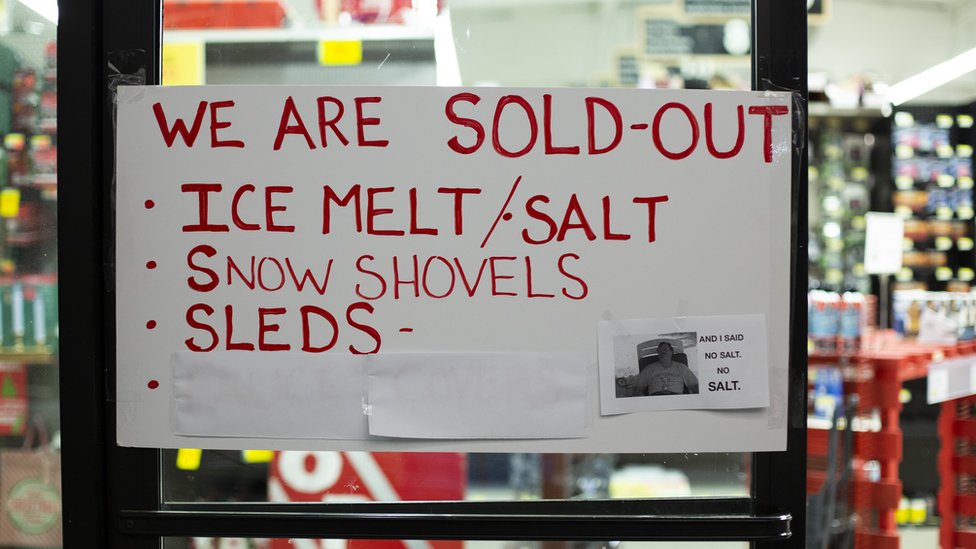 WE ARE SOLD-OUT
• ICE MELT/SALT
• SNOW SHOVELS
• SLEDS -
•
AND I SAID
NO SALT.
NO
SALT.